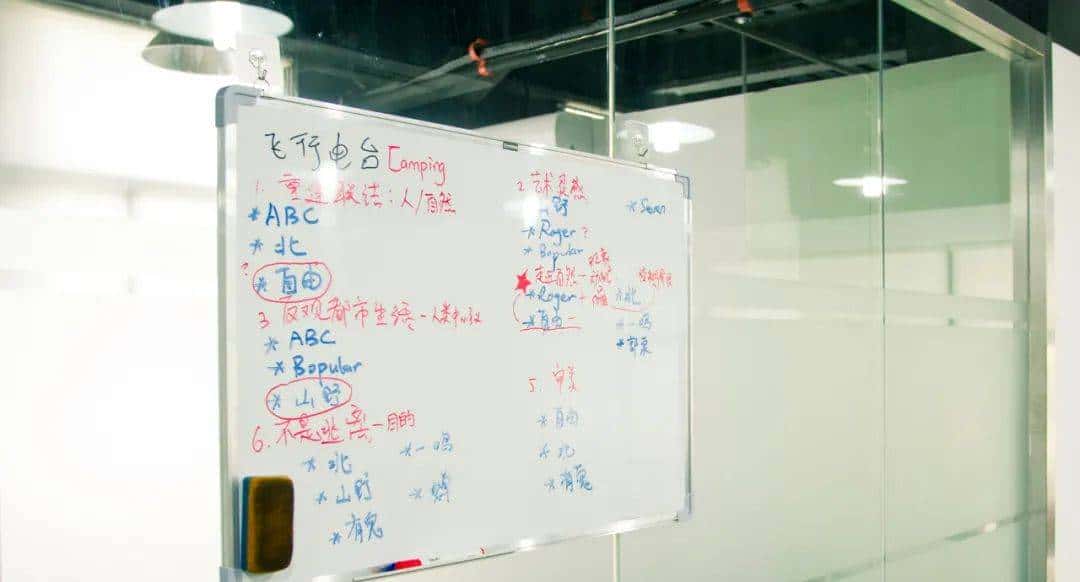 飞行电台 Camping
1. 重造联结：人/自然
* ABC
* 北
? * 自由
3. 反观都市生活 - 人类中心
* ABC
* Bopular
* 山野
6. 不是逃离 - 目的
* 北
* 一鸣
* 山野
* 有鬼
2. 艺术灵感
山野
* Seven
* Roger ?
* Bopular
走进自然 -
* Roger +
* 北
* 自由 -
* 一鸣
* 野泉
5. 审美
* 自由
* 北
* 有鬼